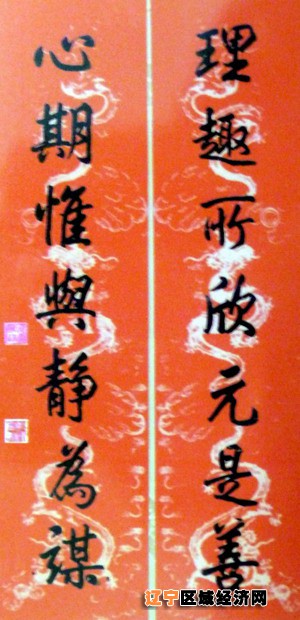 理趣所欣元是善
心期惟與静為謀
辽宁区域经济网